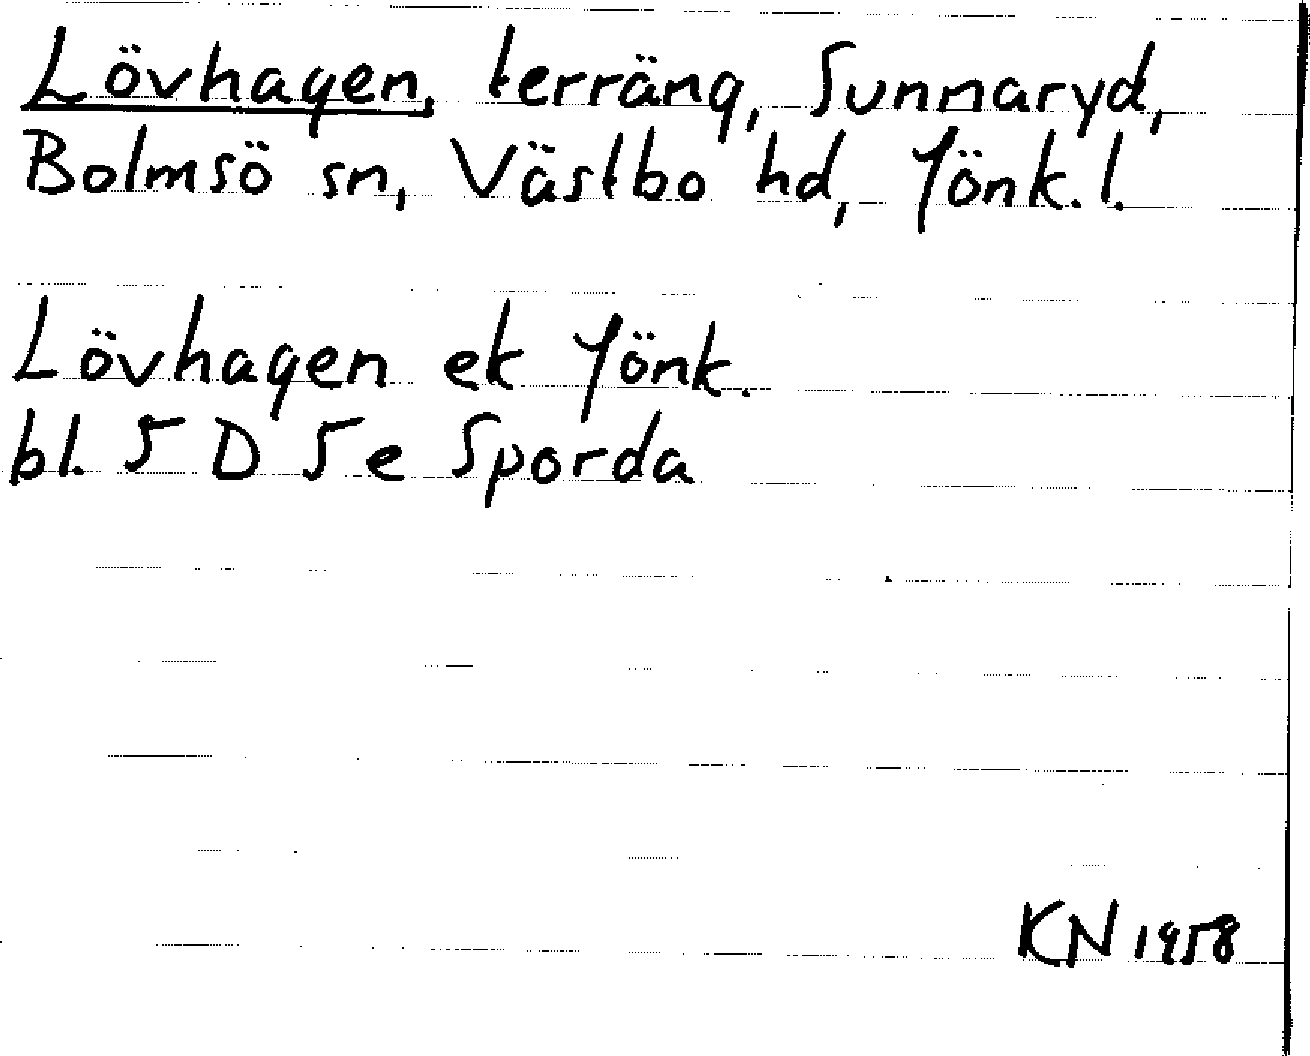 Lövhagen, terräng, Sunnaryd,
Bolmsö sn, Västbo hd, Jönk. l.
Lövhagen ek Jönk.
bl. 5 D 5 e Sporda
KN 1958